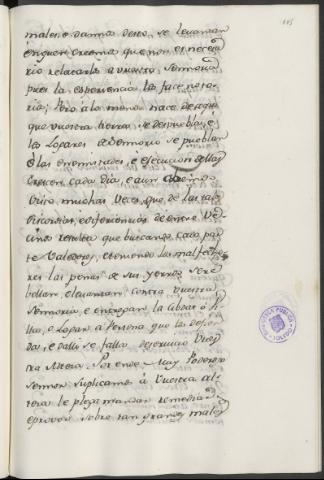 115
males e dannos desto se levantan
é siguen creemos que non es necesa
rio relatarlo a vuestra Sennoria
pues la esperiencia lo face noto
rio; Pero a lo menos nace de aqui
que vuestra tierra se despuebla, é
los Logares é Sennorio se pueblan
é las enemistades, e esecucion dellas
crescen cada dia, e aun
Visto muchas veces, que de las tales
discordias, é diferencias de entre Ve
cinos resulta que buscando cada par
te Valedores, é temiendo los malfecho
res las penas de sus yerros se re
bellan é levantan contra vuestra
Sennoria, é entregan la Cibdad ó Vi
lla, é Logar a Persona que los defien
da, é dalli se falla deservicio Vues
tra Alteza. Por ende Muy Poderoso
Sennor suplicamos á Vuestra al
teza le plega mandar remediar
é proveer sobre tan grandes males